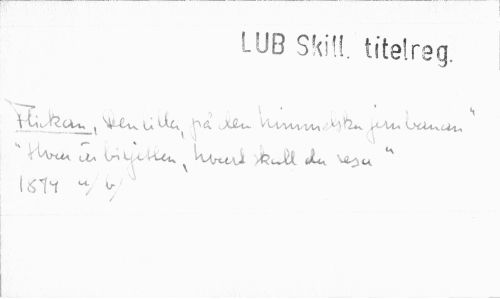 LUB Skill. titelreg.
Flickan, Den lilla, på den himmelska jernbanan"
"Hvar är biljetten, hvart skall du resa"
1874 a/b/